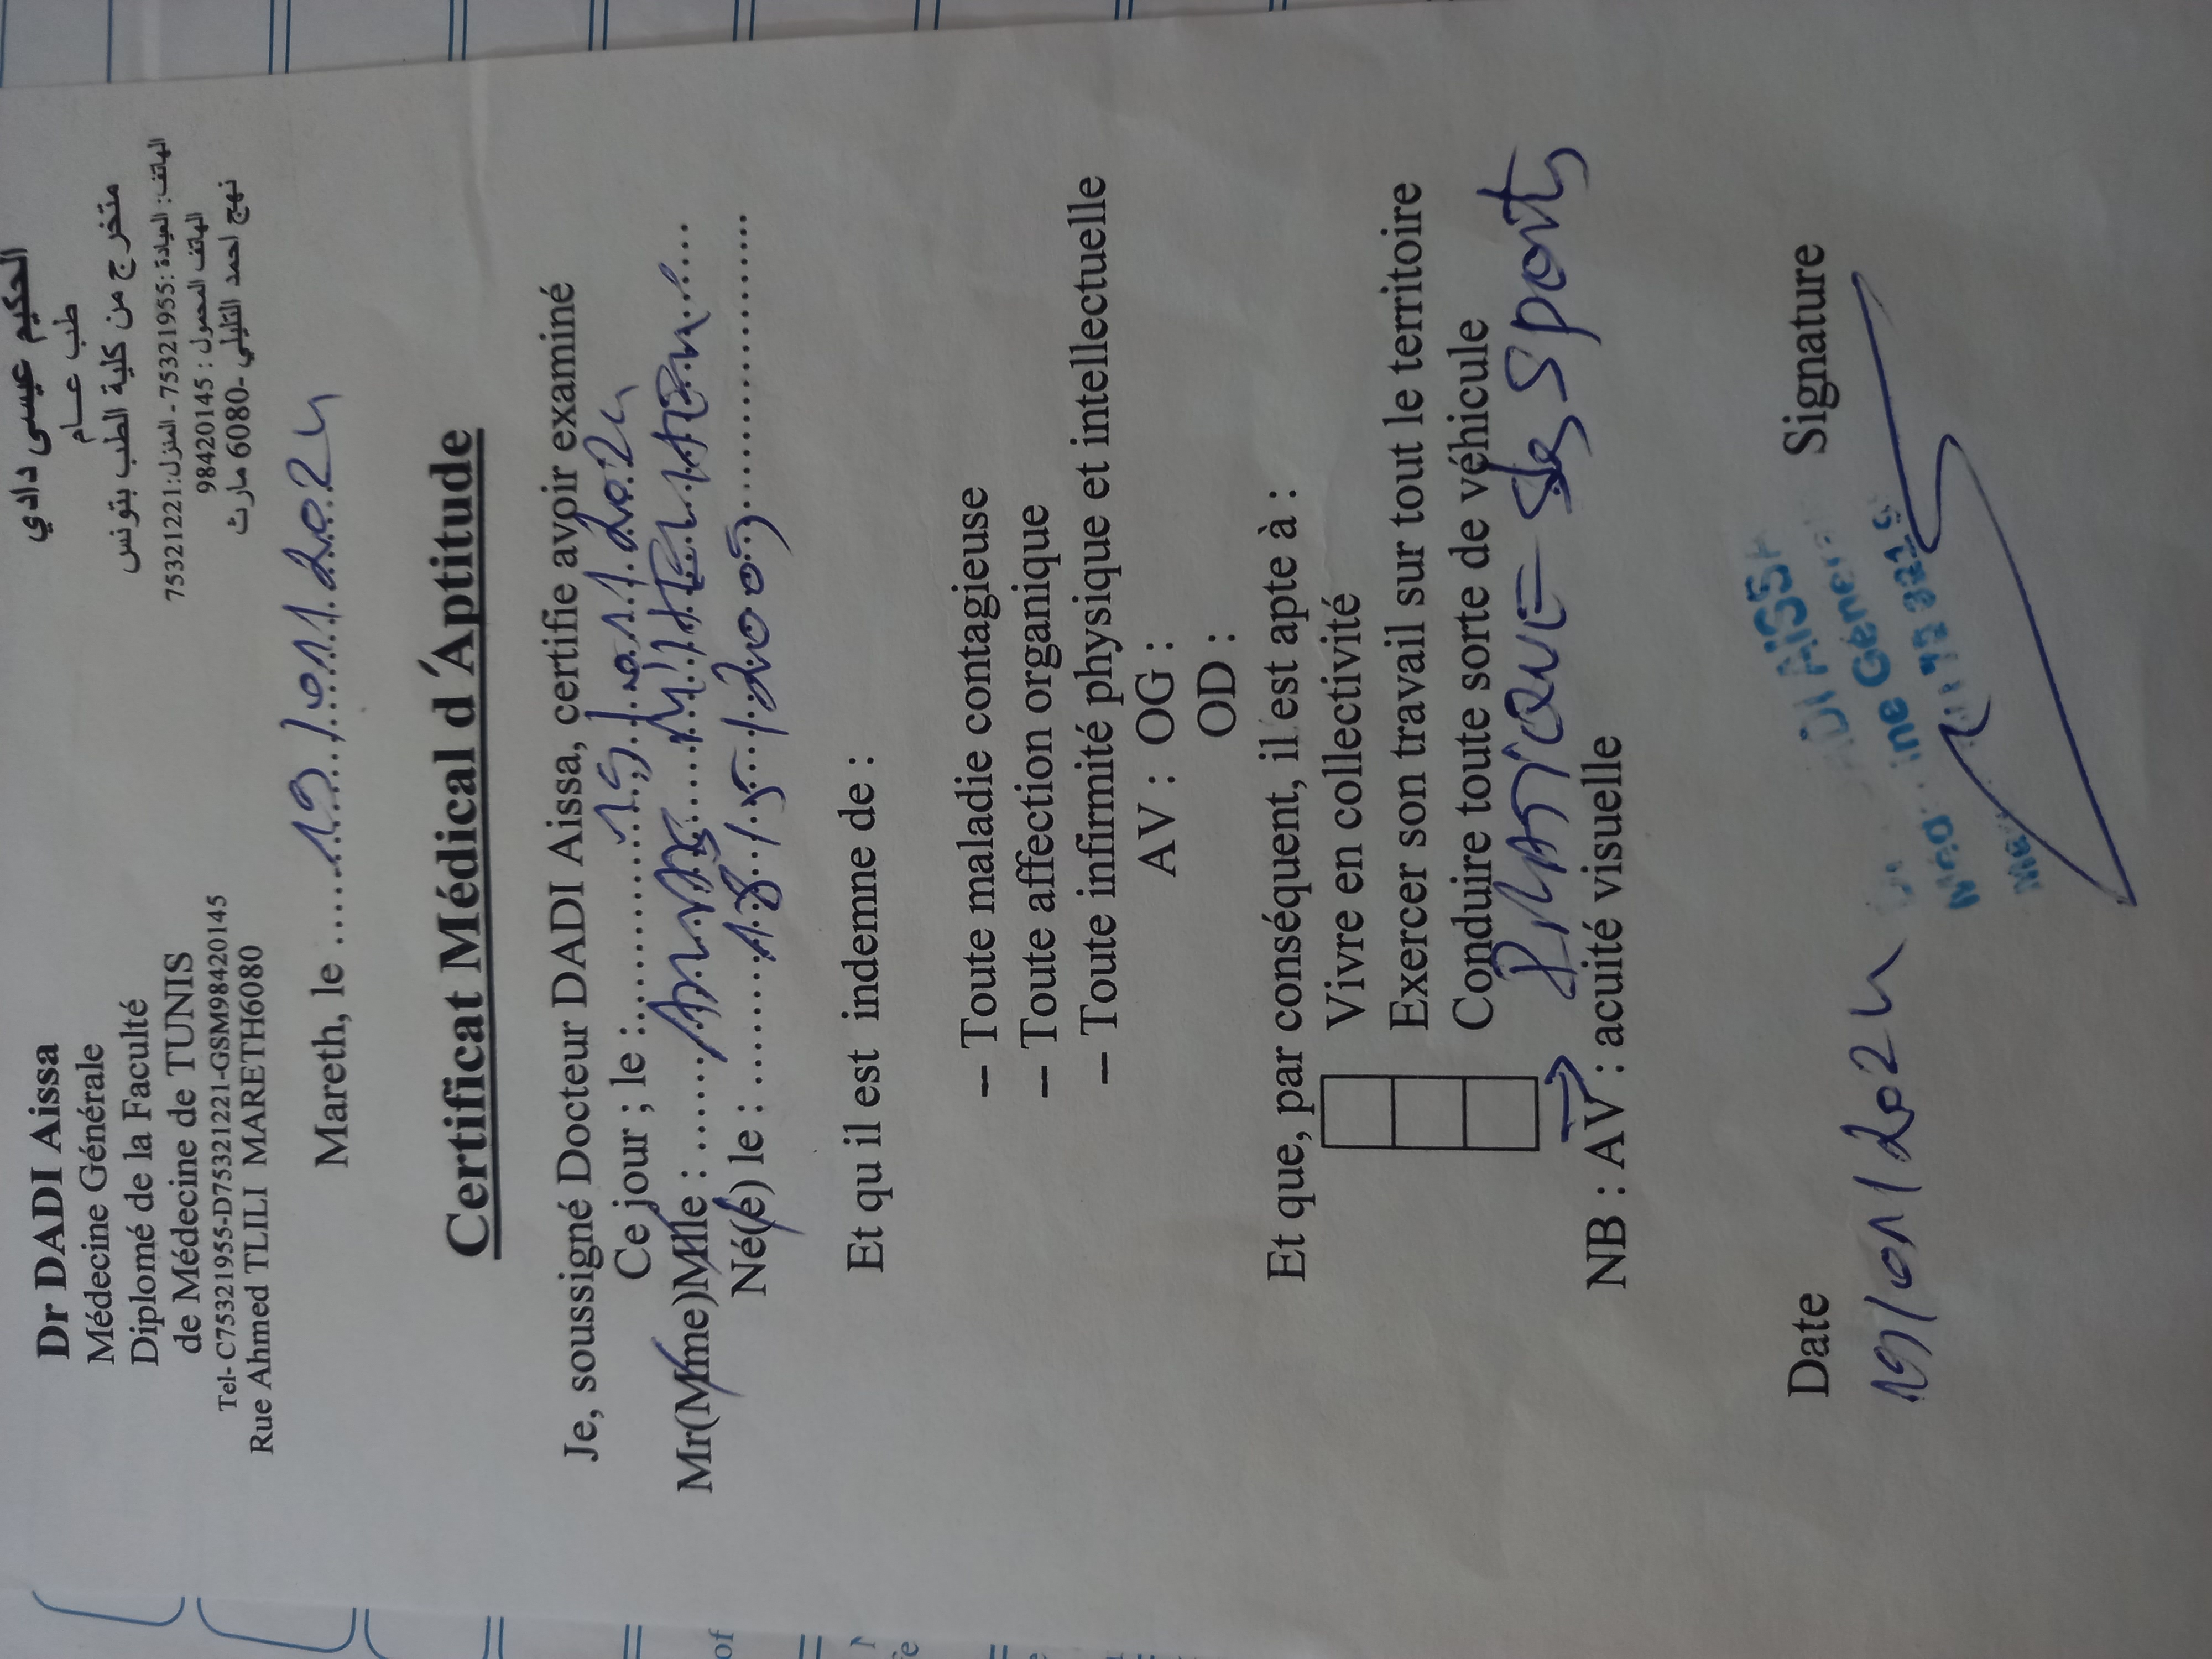 Dr DADI Aissa
Médecine Générale
Diplomé de la Faculté
de Médecine de TUNIS
Tel- C75321955-D75321221-GSM98420145
Rue Ahmed TLILI MARETH6080
الحكيم عيسى دادي
طب عـــام
متخرج من كلية الطب بتونس
الهاتف: العيادة :75321955 - المنزل:75321221
الهاتف المحمول : 98420145
نهج احمد التليلي -6080 مارث
Mareth, le ......19/01/2024
Certificat Médical d´Aptitude
Je, soussigné Docteur DADI Aissa, certifie avoir examiné
Ce jour ; le :............19/01/2024
Mr(Mme)Mlle :
Né(e) le : ..........18/5/2005..................
Et qu il est indemne de :
– Toute maladie contagieuse
– Toute affection organique
– Toute infirmité physique et intellectuelle
AV : OG :
OD :
Et que, par conséquent, il est apte à :
Vivre en collectivité
Exercer son travail sur tout le territoire
Conduire toute sorte de véhicule
→ PRATIQUE des sports
NB : AV : acuité visuelle
Date
Signature
19/01/2024
DADI AISSA